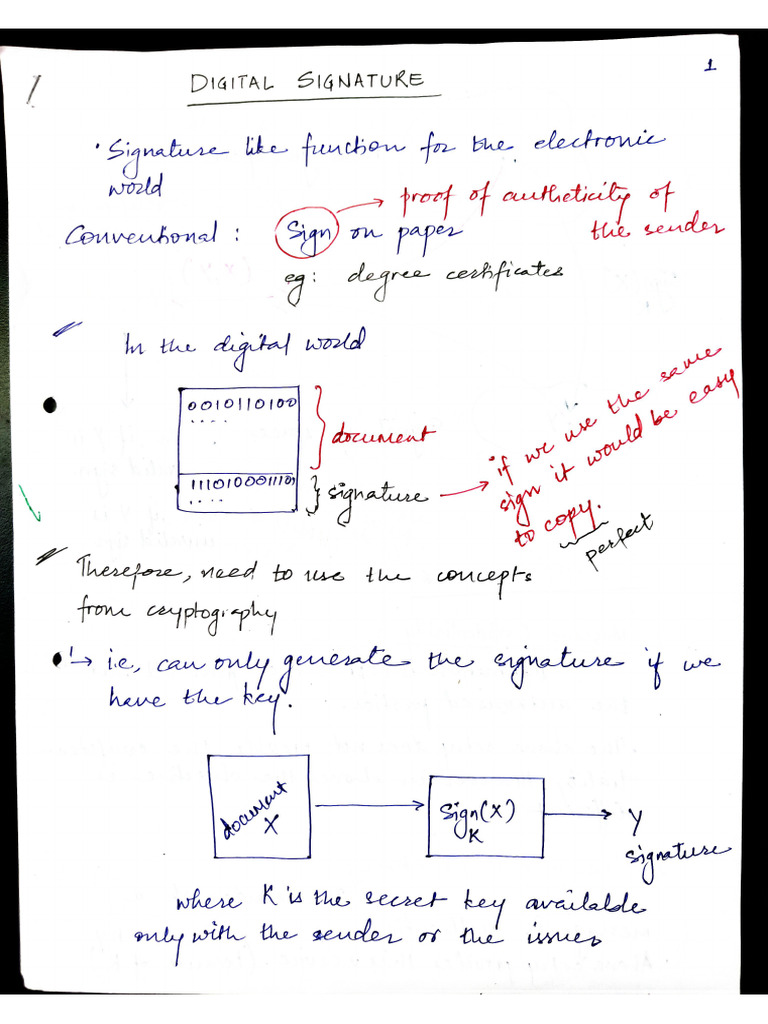 1
DIGITAL SIGNATURE
• Signature like function for the electronic
world
Conventional : Sign on paper
→ proof of autheticity of
the sender
eg: degree certificates
In the digital world
0010110100
....
.
document
1110100011101
....
signature →
• if we use the same
sign it would be easy
to copy.
perfect
Therefore, need to use the concepts
from cryptography
↳ i.e, can only generate the signature if we
have the key.
document
X
Sign(X)
K
Y
signature
where K is the secret key available
only with the sender or the issues